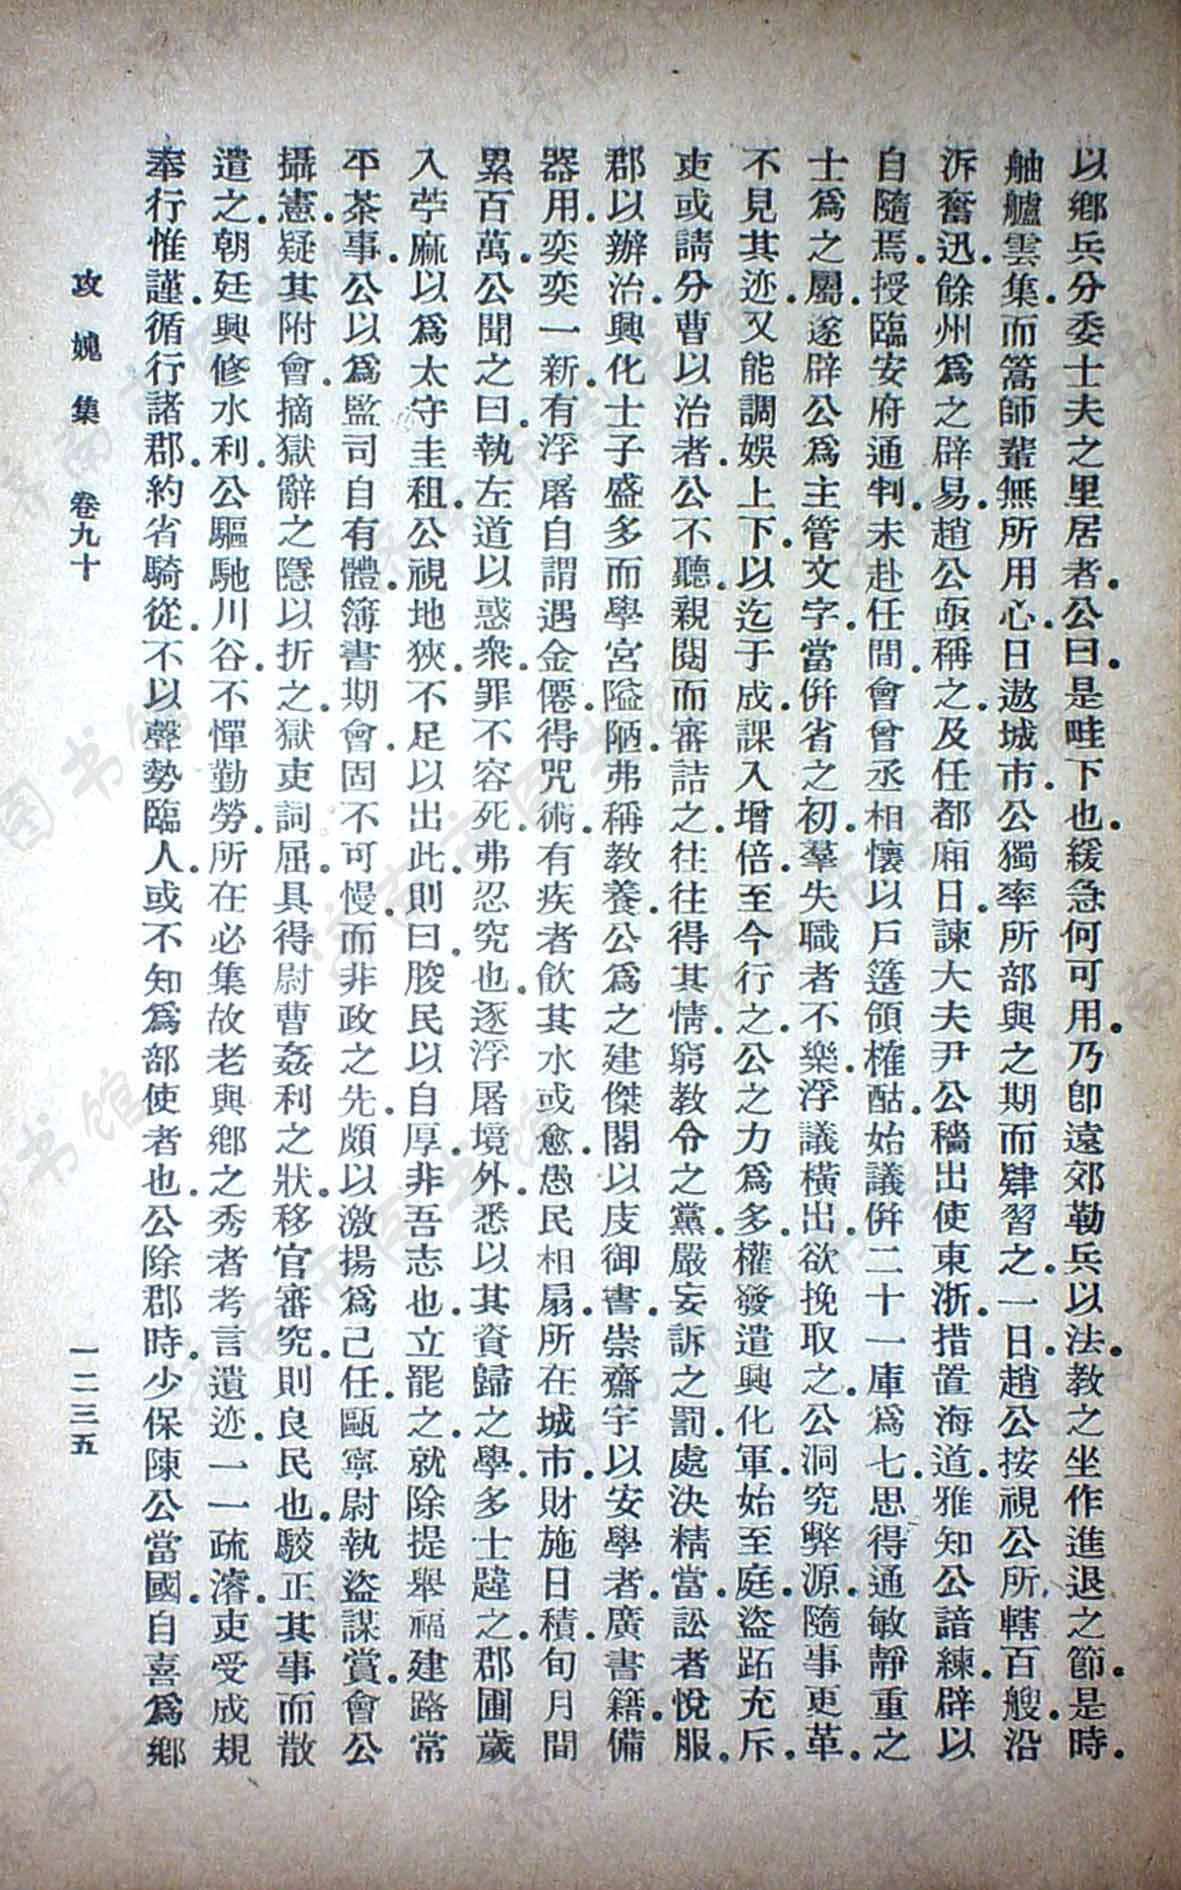 以鄉兵分委士夫之里居者。公曰。是畦下也。緩急何可用。乃卽遠郊勒兵以法。教之坐作進退之節。是時。
舳艫雲集。而篙師輩無所用心。日遨城市。公獨率所部與之期而肄習之。一日。趙公按視公所轄百艘。沿
泝奮迅。餘州爲之辟易。趙公亟稱之。及任都廂日。諫大夫尹公穡出使東浙。措置海道。雅知公諳練。辟以
自隨焉。授臨安府通判。未赴任間。會曾丞相懷以戶簉領榷酤。始議併二十一庫爲七。思得通敏靜重之
士爲之屬。遂辟公爲主管文字。當併省之初。羣失職者不樂。浮議橫出。欲挽取之。公洞究弊源。隨事更革。
不見其迹。又能調娛上下。以迄于成。課入增倍。至今行之。公之力爲多。權發遣興化軍。始至庭。盜跖充斥。
吏或請分曹以治者。公不聽。親閱而審詰之。往往得其情。窮教令之黨。嚴妄訴之罰。處決精當。訟者悅服。
郡以辦治。興化士子盛多。而學宮隘陋。弗稱教養。公爲之建傑閣以庋御書。崇齋宇以安學者。廣書籍。備
器用。奕奕一新。有浮屠自謂遇金僊。得咒術。有疾者飲其水或愈。愚民相扇。所在城市。財施日積。旬月間
累百萬。公聞之曰。執左道以惑衆。罪不容死。弗忍究也。逐浮屠境外。悉以其資歸之學。多士韙之。郡圃歲
入苧麻以爲太守圭租。公視地狹。不足以出此。則曰。朘民以自厚。非吾志也。立罷之。就除提舉福建路常
平茶事。公以爲監司自有體。簿書期會。固不可慢。而非政之先。頗以激揚爲己任。甌寧尉執盜謀賞。會公
攝憲。疑其附會。摘獄辭之隱以折之。獄吏詞屈。具得尉曹姦利之狀。移官審究。則良民也。駮正其事而散
遣之。朝廷興修水利。公驅馳川谷。不憚勤勞。所在必集故老與鄉之秀者考言遺迹。一一疏濬。吏受成規
奉行惟謹。循行諸郡。約省騎從。不以聲勢臨人。或不知爲部使者也。公除郡時。少保陳公當國。自喜爲鄉
攻媿集 卷九十 一二三五